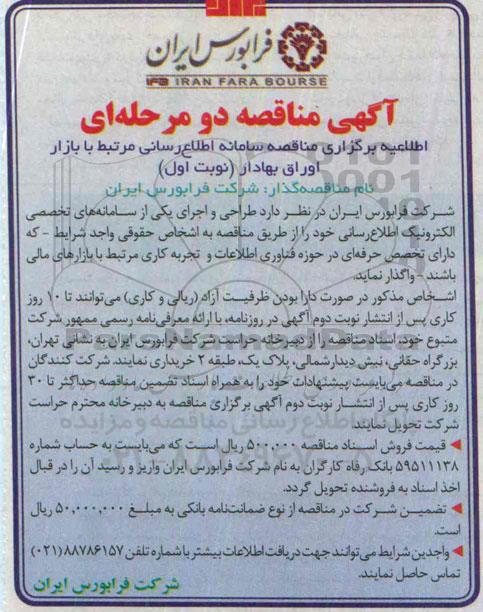 فرابورس ایران
IFB IRAN FARA BOURSE
آگهی مناقصه دو مرحله‌ای
اطلاعیه برگزاری مناقصه سامانه اطلاع‌رسانی مرتبط با بازار
اوراق بهادار (نوبت اول)
نام مناقصه‌گذار: شرکت فرابورس ایران
شرکت فرابورس ایران در نظر دارد طراحی و اجرای یکی از سامانه‌های تخصصی
الکترونیک اطلاع‌رسانی خود را از طریق مناقصه به اشخاص حقوقی واجد شرایط - که
دارای تخصص حرفه‌ای در حوزه فناوری اطلاعات و تجربه کاری مرتبط با بازارهای مالی
باشند - واگذار نماید.
اشخاص مذکور در صورت دارا بودن ظرفیت آزاد (ریالی و کاری) می‌توانند تا ۱۰ روز
کاری پس از انتشار نوبت دوم آگهی در روزنامه، با ارائه معرفی‌نامه رسمی ممهور شرکت
متبوع خود، اسناد مناقصه را از دبیرخانه حراست شرکت فرابورس ایران به نشانی تهران،
بزرگراه حقانی، نبش دیدار شمالی، پلاک یک، طبقه ۲ خریداری نمایند. شرکت کنندگان
در مناقصه می‌بایست پیشنهادات خود را به همراه اسناد تضمین مناقصه حداکثر تا ۳۰
روز کاری پس از انتشار نوبت دوم آگهی برگزاری مناقصه به دبیرخانه محترم حراست
شرکت تحویل نمایند.
◄ قیمت فروش اسناد مناقصه ۵۰۰,۰۰۰ ریال است که می‌بایست به حساب شماره
۵۹۵۱۱۱۳۸ بانک رفاه کارگران به نام شرکت فرابورس ایران واریز و رسید آن را در قبال
اخذ اسناد به فروشنده تحویل گردد.
◄ تضمین شرکت در مناقصه از نوع ضمانت‌نامه بانکی به مبلغ ۵۰,۰۰۰,۰۰۰ ریال
است.
◄ واجدین شرایط می‌توانند جهت دریافت اطلاعات بیشتر با شماره تلفن ۸۸۷۸۶۱۵۷ (۰۲۱)
تماس حاصل نمایند.
شرکت فرابورس ایران